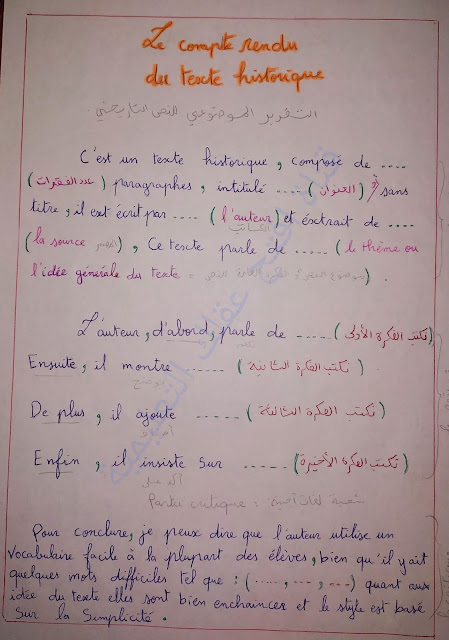 Le compte rendu
du texte historique
التقرير الموضوعي للنص التاريخي.
C'est un texte historique, composé de ....
(عدد الفقرات) paragraphes, intitulé .... (العنوان) أو sans
titre, il est écrit par .... (l'auteur) et éxtrait de ....
الكاتب
(la source المصدر), Ce texte parle de ..... (le thème ou
l'idée générale du texte = موضوع النص).
L'auteur, d'abord, parle de ..... (تكتب الفكرة الأولى)
Ensuite, il montre ..... (تكتب الفكرة الثانية).
يوضح
De plus, il ajoute ...... (تكتب الفكرة الثالثة)
أضاف
Enfin, il insiste sur ..... (تكتب الفكرة الأخيرة)
أكد على
Partie critique : شعبة لغات أجنبية
Pour conclure, je peux dire que l'auteur utilise un
vocabulaire facile à la plupart des élèves, bien qu'il y ait
quelques mots difficiles tel que : (......, ---, ---) quant aux
idée du texte elles sont bien enchainces et le style est basé
sur la Simplicité.